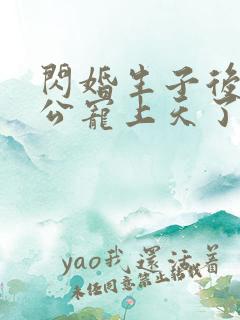 閃婚生子後
公寵上天了
yao我還活着
未經同意禁止轉載